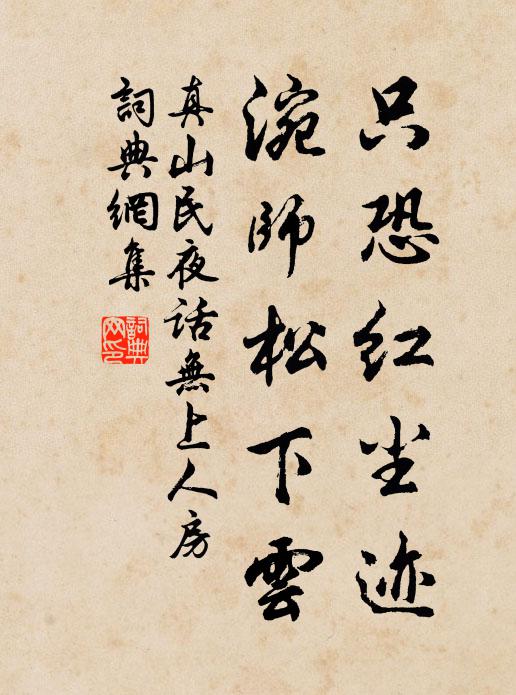 只恐红尘迹
涴师松下雲
真山民夜话無上人房
詞典網集
詞典網印